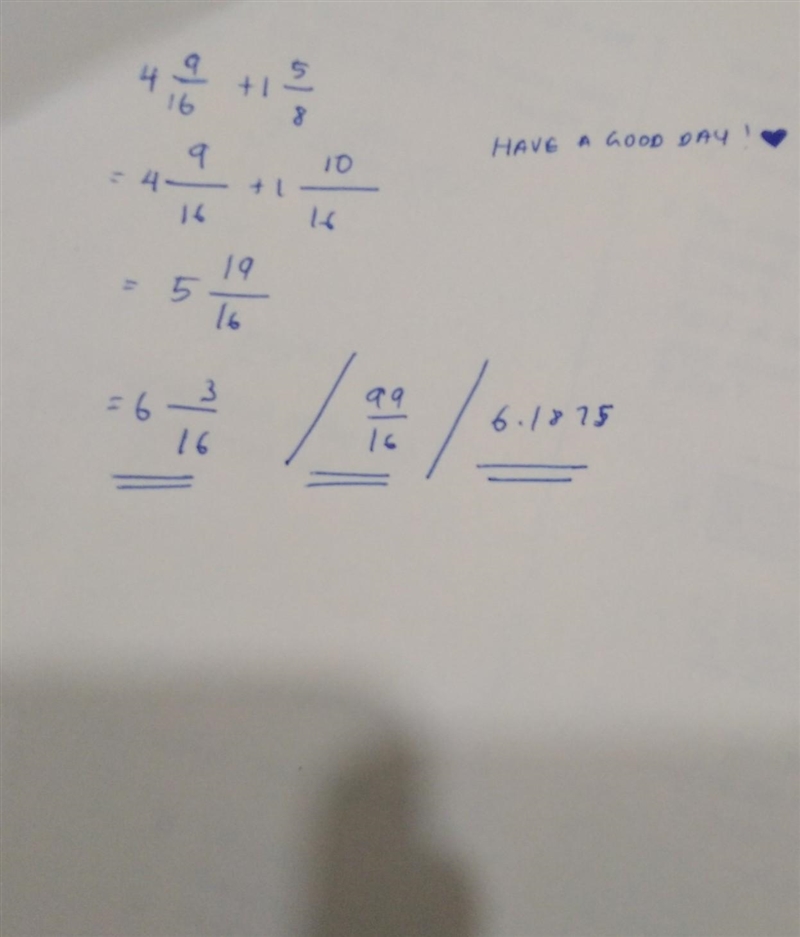 4 9/16 + 1 5/8
HAVE A GOOD DAY! ♥
= 4 9/16 + 1 10/16
= 5 19/16
= 6 3/16 / 99/16 / 6.1875